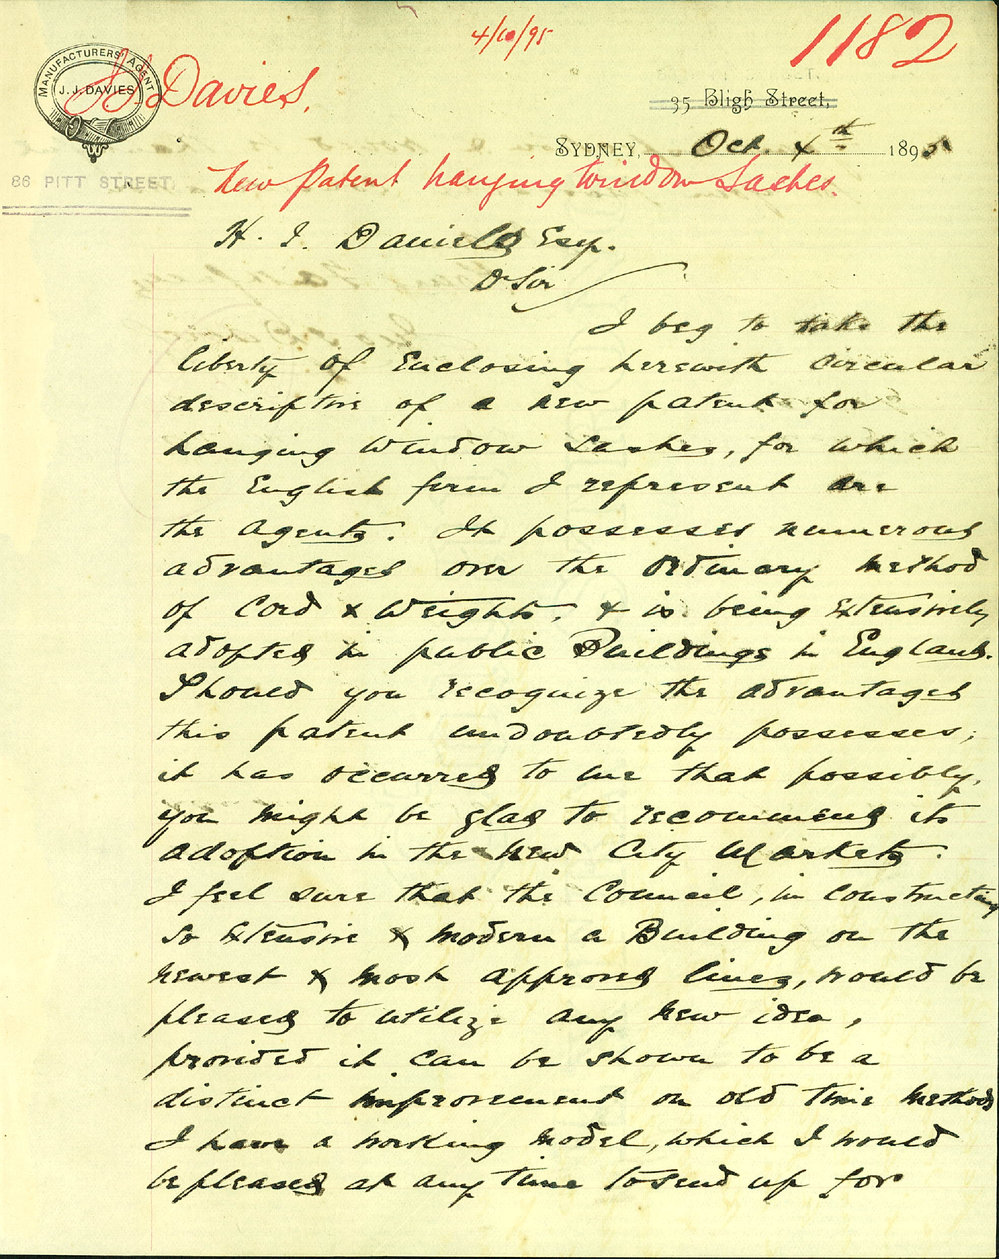 4/10/95
1182
J J Davies.
MANUFACTURERS' AGENT
J. J. DAVIES
35 Bligh Street,
SYDNEY, Oct 4th 1895
86 PITT STREET
New Patent hanging Window Sashes.
H. I. Daniels Esq.
D Sir
I beg to take the
liberty of Enclosing herewith circular
descriptive of a new patent for
hanging Window Sashes, for which
the English firm I represent are
the Agents. It possesses numerous
advantages over the Ordinary Method
of Cord & Weights, & is being Extensively
adopted in public Buildings in England.
Should you recognize the advantages
this patent undoubtedly possesses,
it has occurred to me that possibly,
you might be glad to recommend its
adoption in the New City Markets.
I feel sure that the Council, in constructing
so Extensive & modern a Building on the
newest & most approved lines, would be
pleased to utilize any new idea,
provided it can be shown to be a
distinct improvement on old time methods
I have a working model, which I would
be pleased at any time to send up for